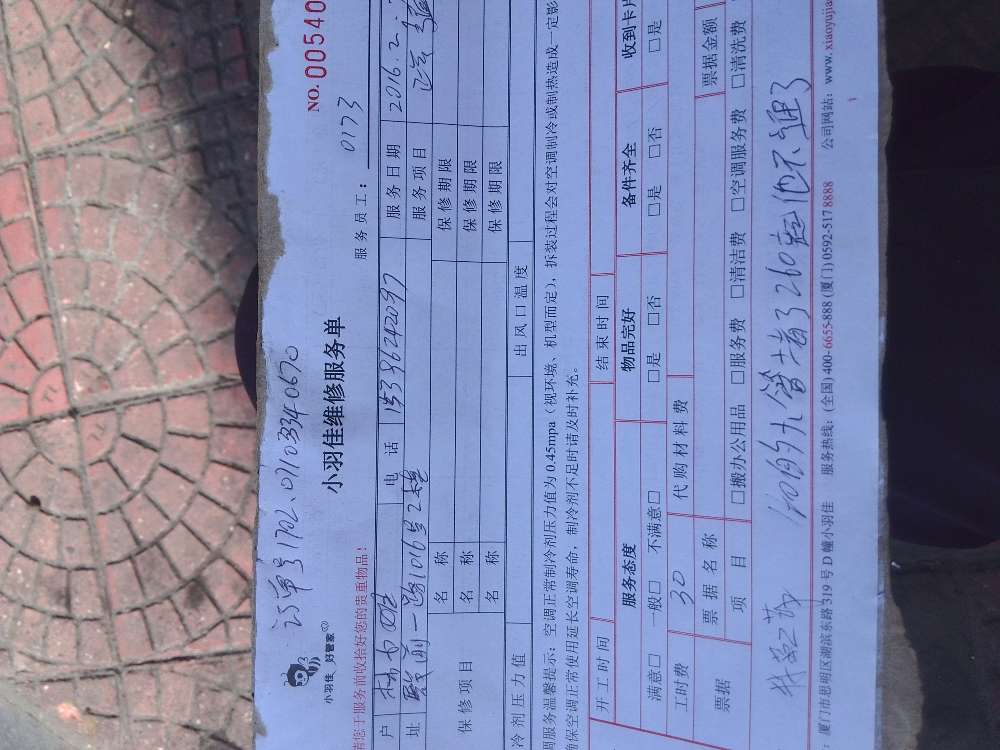 订单号1702.0103340670
小羽佳 好管家
小羽佳维修服务单
NO.00540
请您于服务前收拾好您的贵重物品!
服务员工: 0173
户
电 话 15396212097
服务日期 2016.2.
址 殿前一路1016号2楼
服务项目
保修项目
名 称
保修期限
名 称
保修期限
名 称
保修期限
冷剂压力值
出风口温度
调服务温馨提示:空调正常制冷剂压力值为 0.45mpa(视环境、机型而定),拆装过程会对空调制冷或制热造成一定影
确保空调正常使用延长空调寿命,制冷剂不足时请及时补充。
开工时间
结束时间
服务态度
物品完好
备件齐全
收到卡片
满意□ 一般□ 不满意□
□是 □否
□是 □否
□是
工时费 30
代购材料费
票据
票据名称
票据金额
项 目
□搬办公用品 □服务费 □清洁费 □空调服务费 □清洗费
:厦门市思明区湖滨东路 319 号 D 幢小羽佳 服务热线:(全国) 400-6655-888 (厦门) 0592-517 8888 公司网站:www. xiaoyujia